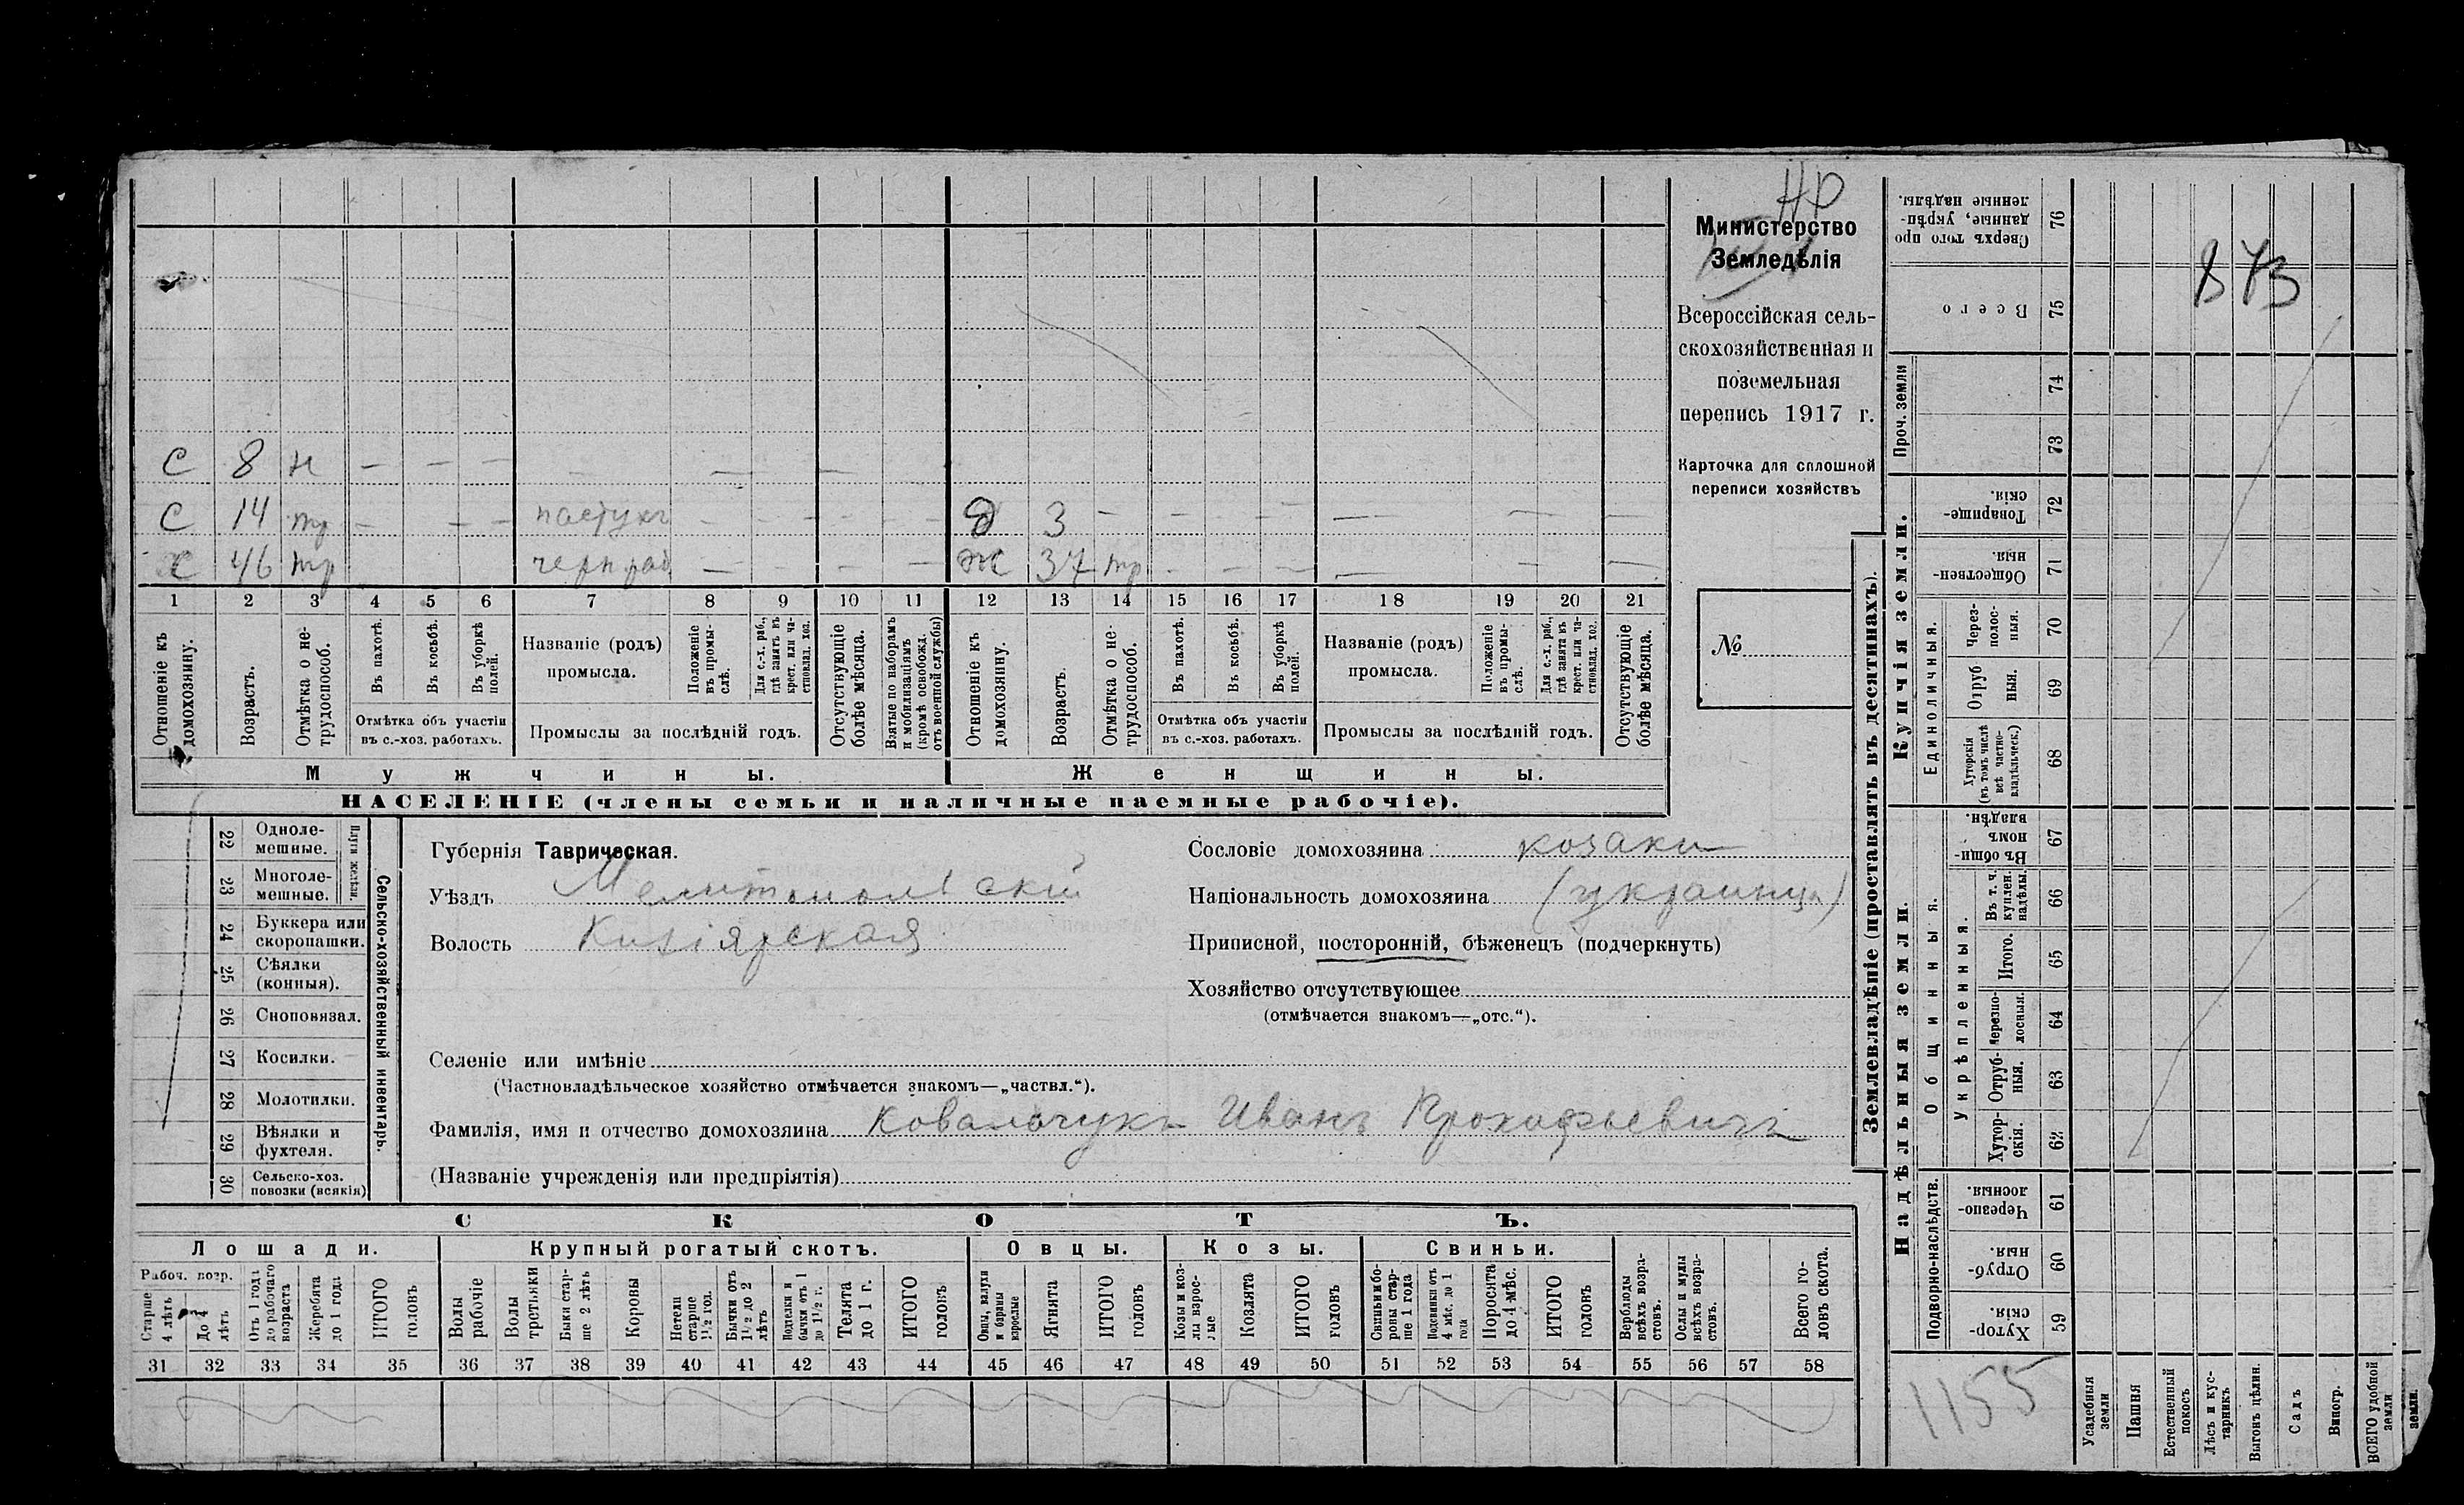 НР
Министерство
Земледѣлія
Всероссійская сель-
скохозяйственная и
поземельная
перепись 1917 г.
Карточка для сплошной
переписи хозяйствъ
№
873
С 8 н — — — — — —
С 14 тр — — — пастухъ — — — — д 3 — — — — — — —
х 46 тр черн раб — — — — ж 37 тр — — — — — —
1 2 3 4 5 6 7 8 9 10 11 12 13 14 15 16 17 18 19 20 21
Отношеніе къ домохозяину.
Возрастъ.
Отмѣтка о не-трудоспособ.
Въ пахотѣ.
Въ косьбѣ.
Въ уборкѣ полей.
Отмѣтка объ участіи
въ с.-хоз. работахъ.
Названіе (родъ)
промысла.
Положеніе въ промы-слѣ.
Для с.-х. раб., гдѣ занятъ въ крест. или ча-стновлад. хоз.
Промыслы за послѣдній годъ.
Отсутствующіе болѣе мѣсяца.
Взятые по наборамъ и мобилизаціямъ (кромѣ освобожд. отъ военной службы)
Отношеніе къ домохозяину.
Возрастъ.
Отмѣтка о не-трудоспособ.
Въ пахотѣ.
Въ косьбѣ.
Въ уборкѣ полей.
Отмѣтка объ участіи
въ с.-хоз. работахъ.
Названіе (родъ)
промысла.
Положеніе въ промы-слѣ.
Для с.-х. раб., гдѣ занята въ крест. или ча-стновлад. хоз.
Промыслы за послѣдній годъ.
Отсутствующіе болѣе мѣсяца.
Мужчины.
Женщины.
НАСЕЛЕНІЕ (члены семьи и наличные наемные рабочіе).
22 Одноле-мешные.
23 Многоле-мешные.
Плуги желѣзн.
24 Буккера или скоропашки.
25 Сѣялки (конныя).
26 Сноповязал.
27 Косилки.
28 Молотилки.
29 Вѣялки и фухтеля.
30 Сельско-хоз. повозки (всякія)
Сельско-хозяйственный инвентарь.
Губернія Таврическая.
Уѣздъ Мелитопольскій
Волость Кизіярская
Сословіе домохозяина козаки
Національность домохозяина (украинцы)
Приписной, посторонній, бѣженецъ (подчеркнуть)
Хозяйство отсутствующее
(отмѣчается знакомъ—„отс.“).
Селеніе или имѣніе
(Частновладѣльческое хозяйство отмѣчается знакомъ—„частвл.“).
Фамилія, имя и отчество домохозяина Ковальчукъ Иванъ Прокофьевичъ
(Названіе учрежденія или предпріятія)
СКОТЪ.
Лошади. Крупный рогатый скотъ. Овцы. Козы. Свиньи.
Рабоч. возр.
Старше 4 лѣтъ
До 4 лѣтъ
Отъ 1 года до рабочаго возраста
Жеребята до 1 года
ИТОГО головъ
Волы рабочіе
Волы третьяки
Быки стар-ше 2 лѣтъ
Коровы
Нетели старше 1½ год.
Бычки отъ 1½ до 2 лѣтъ
Подтелки и бычки отъ 1 до 1½ г.
Телята до 1 г.
ИТОГО головъ
Овцы, валухи и бараны взрослые
Ягнята
ИТОГО головъ
Козы и коз-лы взрос-лые
Козлята
ИТОГО головъ
Свиньи и бо-ровы стар-ше 1 года
Подсвинки отъ 4 мѣс. до 1 года
Поросята до 4 мѣс.
ИТОГО головъ
Верблюды всѣхъ возра-стовъ.
Ослы и мулы всѣхъ возра-стовъ.
Всего го-ловъ скота.
31 32 33 34 35 36 37 38 39 40 41 42 43 44 45 46 47 48 49 50 51 52 53 54 55 56 57 58
Землевладѣніе (проставлять въ десятинахъ).
Купчія земли.
Надѣльныя земли.
Сверхъ того про данные, укрѣп-ленные надѣлы. 76
Всего 75
Проч. земли
74
73
Товарище-скія. 72
Обществен-ныя. 71
Единоличныя.
Через-полос-ныя. 70
Отруб ныя. 69
Хуторскія (въ томъ числѣ всѣ частно-владѣльческ.) 68
Общинныя.
Въ общин-номъ владѣн. 67
Укрѣпленныя.
Въ т. ч. куплен. надѣлы. 66
Итого. 65
Черезпо-лосныя. 64
Отруб-ныя. 63
Хутор-скія. 62
Подворно-наслѣдств.
Черезпо-лосныя. 61
Отруб-ныя. 60
Хутор-скія. 59
1155
Усадебныя земли
Пашня
Естественный покосъ
Лѣсъ и кус-тарникъ
Выгонъ цѣлин.
Садъ
Виногр.
ВСЕГО удобной земли
земли.